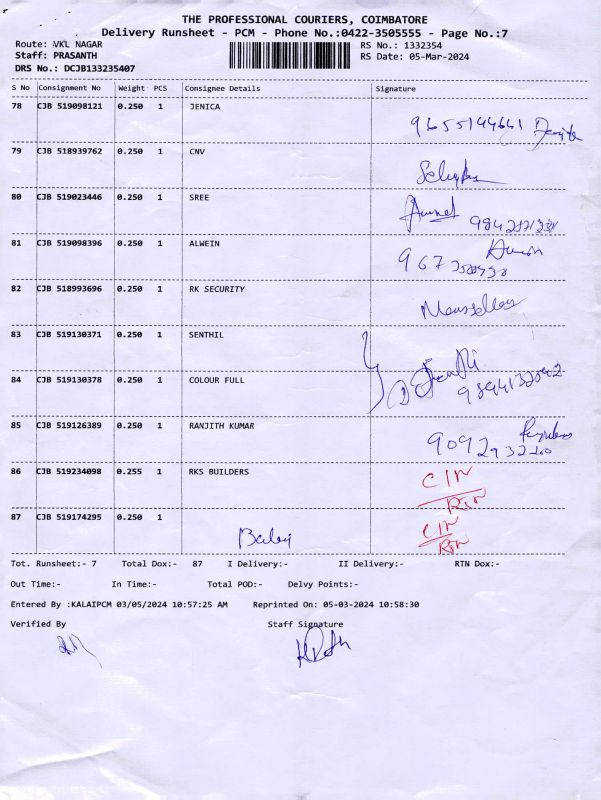 THE PROFESSIONAL COURIERS, COIMBATORE
Delivery Runsheet - PCM - Phone No.:0422-3505555 - Page No.:7
Route: VKL NAGAR RS No.: 1332354
Staff: PRASANTH RS Date: 05-Mar-2024
DRS No.: DCJB133235407
S No Consignment No Weight PCS Consignee Details Signature
78 CJB 519098121 0.250 1 JENICA
9655144661
79 CJB 518939762 0.250 1 CNV
80 CJB 519023446 0.250 1 SREE
81 CJB 519098396 0.250 1 ALWEIN
82 CJB 518993696 0.250 1 RK SECURITY
83 CJB 519130371 0.250 1 SENTHIL
84 CJB 519130378 0.250 1 COLOUR FULL
85 CJB 519126389 0.250 1 RANJITH KUMAR
86 CJB 519234098 0.255 1 RKS BUILDERS CIN
RTN
87 CJB 519174295 0.250 1 CIN
RTN
Balaji
Tot. Runsheet:- 7 Total Dox:- 87 I Delivery:- II Delivery:- RTN Dox:-
Out Time:- In Time:- Total POD:- Delvy Points:-
Entered By :KALAIPCM 03/05/2024 10:57:25 AM Reprinted On: 05-03-2024 10:58:30
Verified By Staff Signature